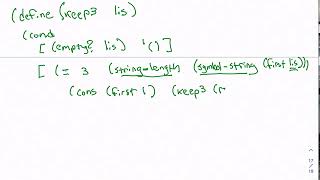 (define (keep3 lis)
(cond
[ (empty? lis) '()]
[ (= 3 (string-length (symbol-string (first lis)))
(cons (first l) (keep3 (r
17
18